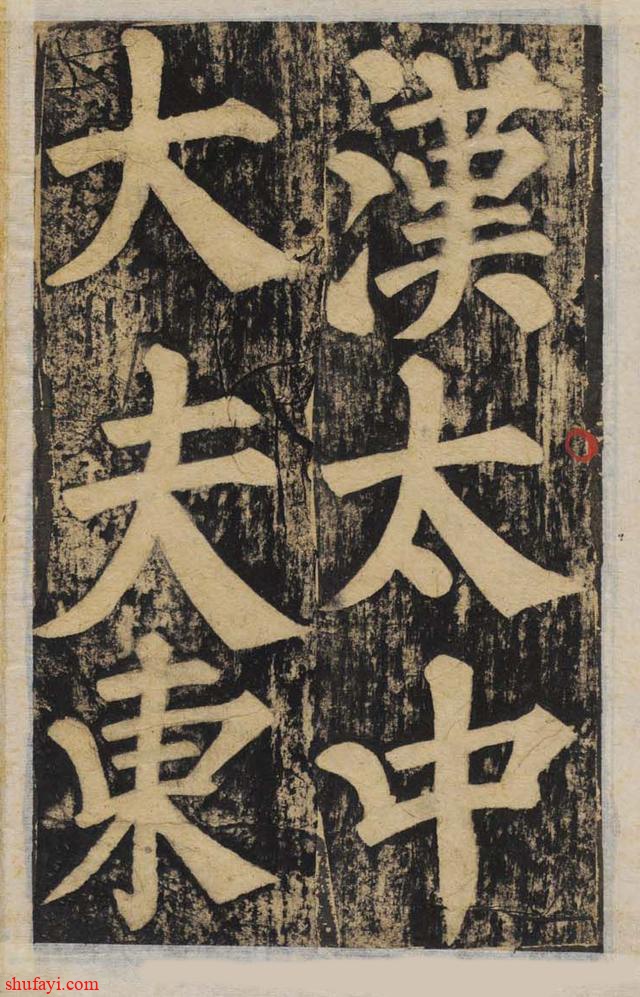 漢太中
大夫東
shufayi.com